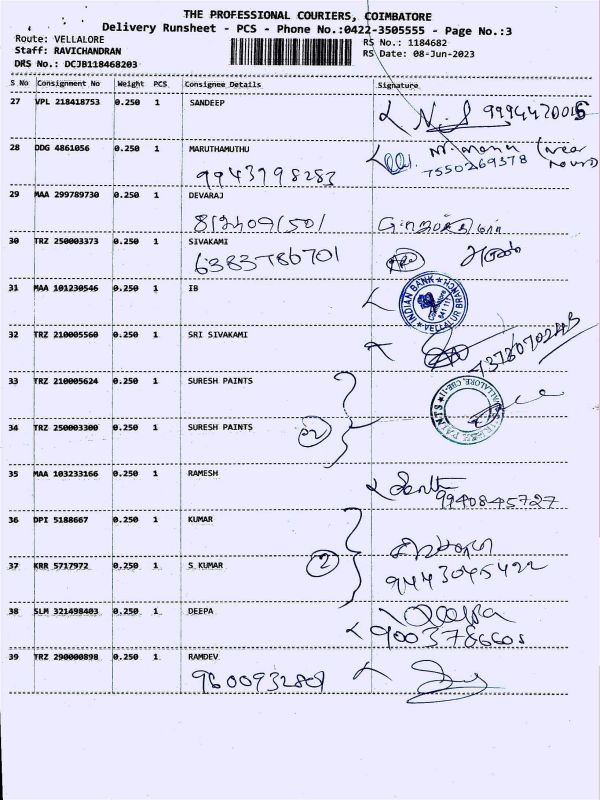 THE PROFESSIONAL COURIERS, COIMBATORE
Delivery Runsheet - PCS - Phone No.:0422-3505555 - Page No.:3
Route: VELLALORE RS No.: 1184682
Staff: RAVICHANDRAN RS Date: 08-Jun-2023
DRS No.: DCJB118468203
S No Consignment No Weight PCS Consignee Details Signature
27 VPL 218418753 0.250 1 SANDEEP
28 DDG 4861056 0.250 1 MARUTHAMUTHU
7550269378
9943798283
29 MAA 299789730 0.250 1 DEVARAJ
30 TRZ 250003373 0.250 1 SIVAKAMI
6383786701
31 MAA 101230546 0.250 1 IB
INDIAN BANK
VELLALUR BRANCH
32 TRZ 210005560 0.250 1 SRI SIVAKAMI
33 TRZ 210005624 0.250 1 SURESH PAINTS
34 TRZ 250003300 0.250 1 SURESH PAINTS
2
35 MAA 103233166 0.250 1 RAMESH
9940845727
36 DPI 5188667 0.250 1 KUMAR
2
37 KRR 5717972 0.250 1 S KUMAR
9443045422
38 SLM 321498403 0.250 1 DEEPA
Deepa
9003786605
39 TRZ 290000898 0.250 1 RAMDEV
9600932801